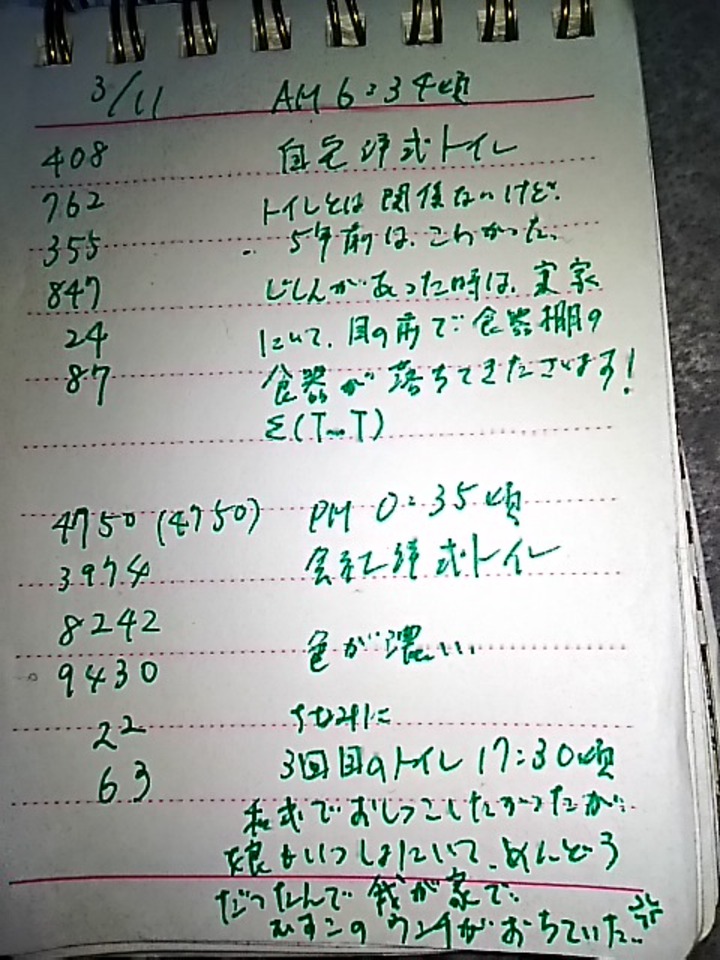 3/11 AM 6:34頃
408 自宅洋式トイレ
762 トイレとは関係ないけど、
355 5年前は、こわかった、
847 じしんがあった時は、実家
24 にいて、目の前で食器棚の
87 食器が落ちてきたざいます!
Σ(T_T)
4750 (4750) PM 0:35頃
3974 会社洋式トイレ
8242
9430 色が濃いい
22 ちなみに
63 3回目のトイレ 17:30頃
和式でおしっこしたかったが、
娘もいっしょにいて、めんどう
だったんで我が家で、
むすこのウンチがおちていた、